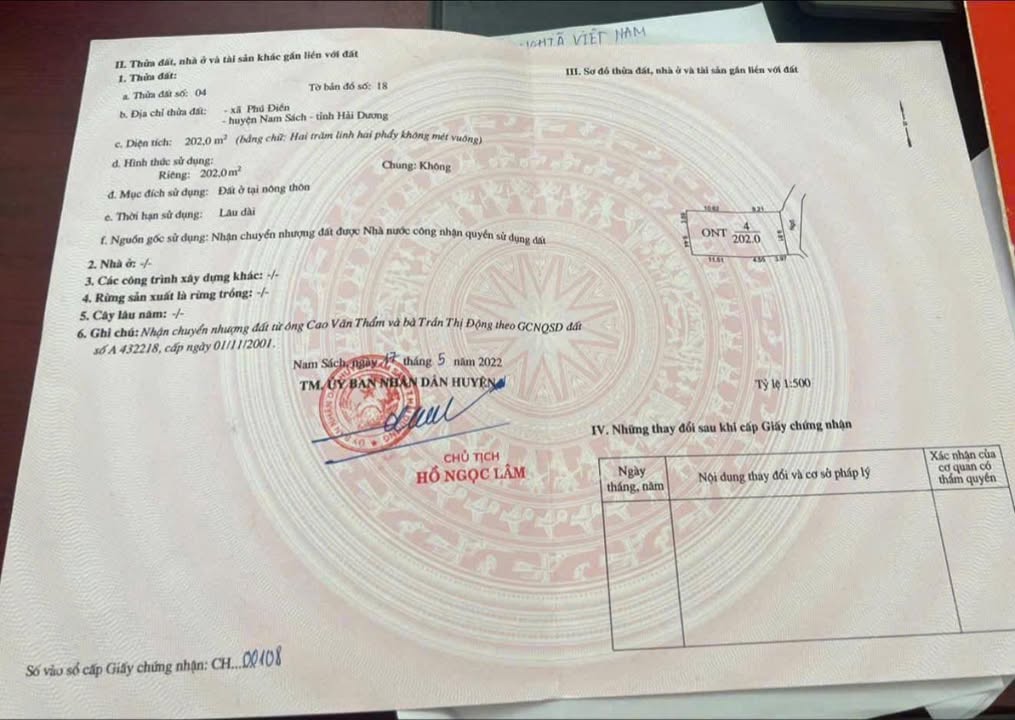 NGHĨA VIỆT NAM
II. Thửa đất, nhà ở và tài sản khác gắn liền với đất
1. Thửa đất:
a. Thửa đất số: 04 Tờ bản đồ số: 18
b. Địa chỉ thửa đất: - xã Phú Điền
- huyện Nam Sách - tỉnh Hải Dương
c. Diện tích: 202,0 m² (bằng chữ: Hai trăm linh hai phẩy không mét vuông)
d. Hình thức sử dụng:
Riêng: 202,0 m² Chung: Không
đ. Mục đích sử dụng: Đất ở tại nông thôn
e. Thời hạn sử dụng: Lâu dài
f. Nguồn gốc sử dụng: Nhận chuyển nhượng đất được Nhà nước công nhận quyền sử dụng đất
2. Nhà ở: -/-
3. Các công trình xây dựng khác: -/-
4. Rừng sản xuất là rừng trồng: -/-
5. Cây lâu năm: -/-
6. Ghi chú: Nhận chuyển nhượng đất từ ông Cao Văn Thẩm và bà Trần Thị Động theo GCNQSD đất
số A 432218, cấp ngày 01/11/2001.
Nam Sách, ngày 17 tháng 5 năm 2022
TM. ỦY BAN NHÂN DÂN HUYỆN
CHỦ TỊCH
HỒ NGỌC LÂM
Số vào sổ cấp Giấy chứng nhận: CH...00108
III. Sơ đồ thửa đất, nhà ở và tài sản gắn liền với đất
10.62 9.21
ONT 4
202.0
11.51 4.55 3.97
Tỷ lệ 1:500
IV. Những thay đổi sau khi cấp Giấy chứng nhận
Ngày tháng, năm
Nội dung thay đổi và cơ sở pháp lý
Xác nhận của cơ quan có thẩm quyền